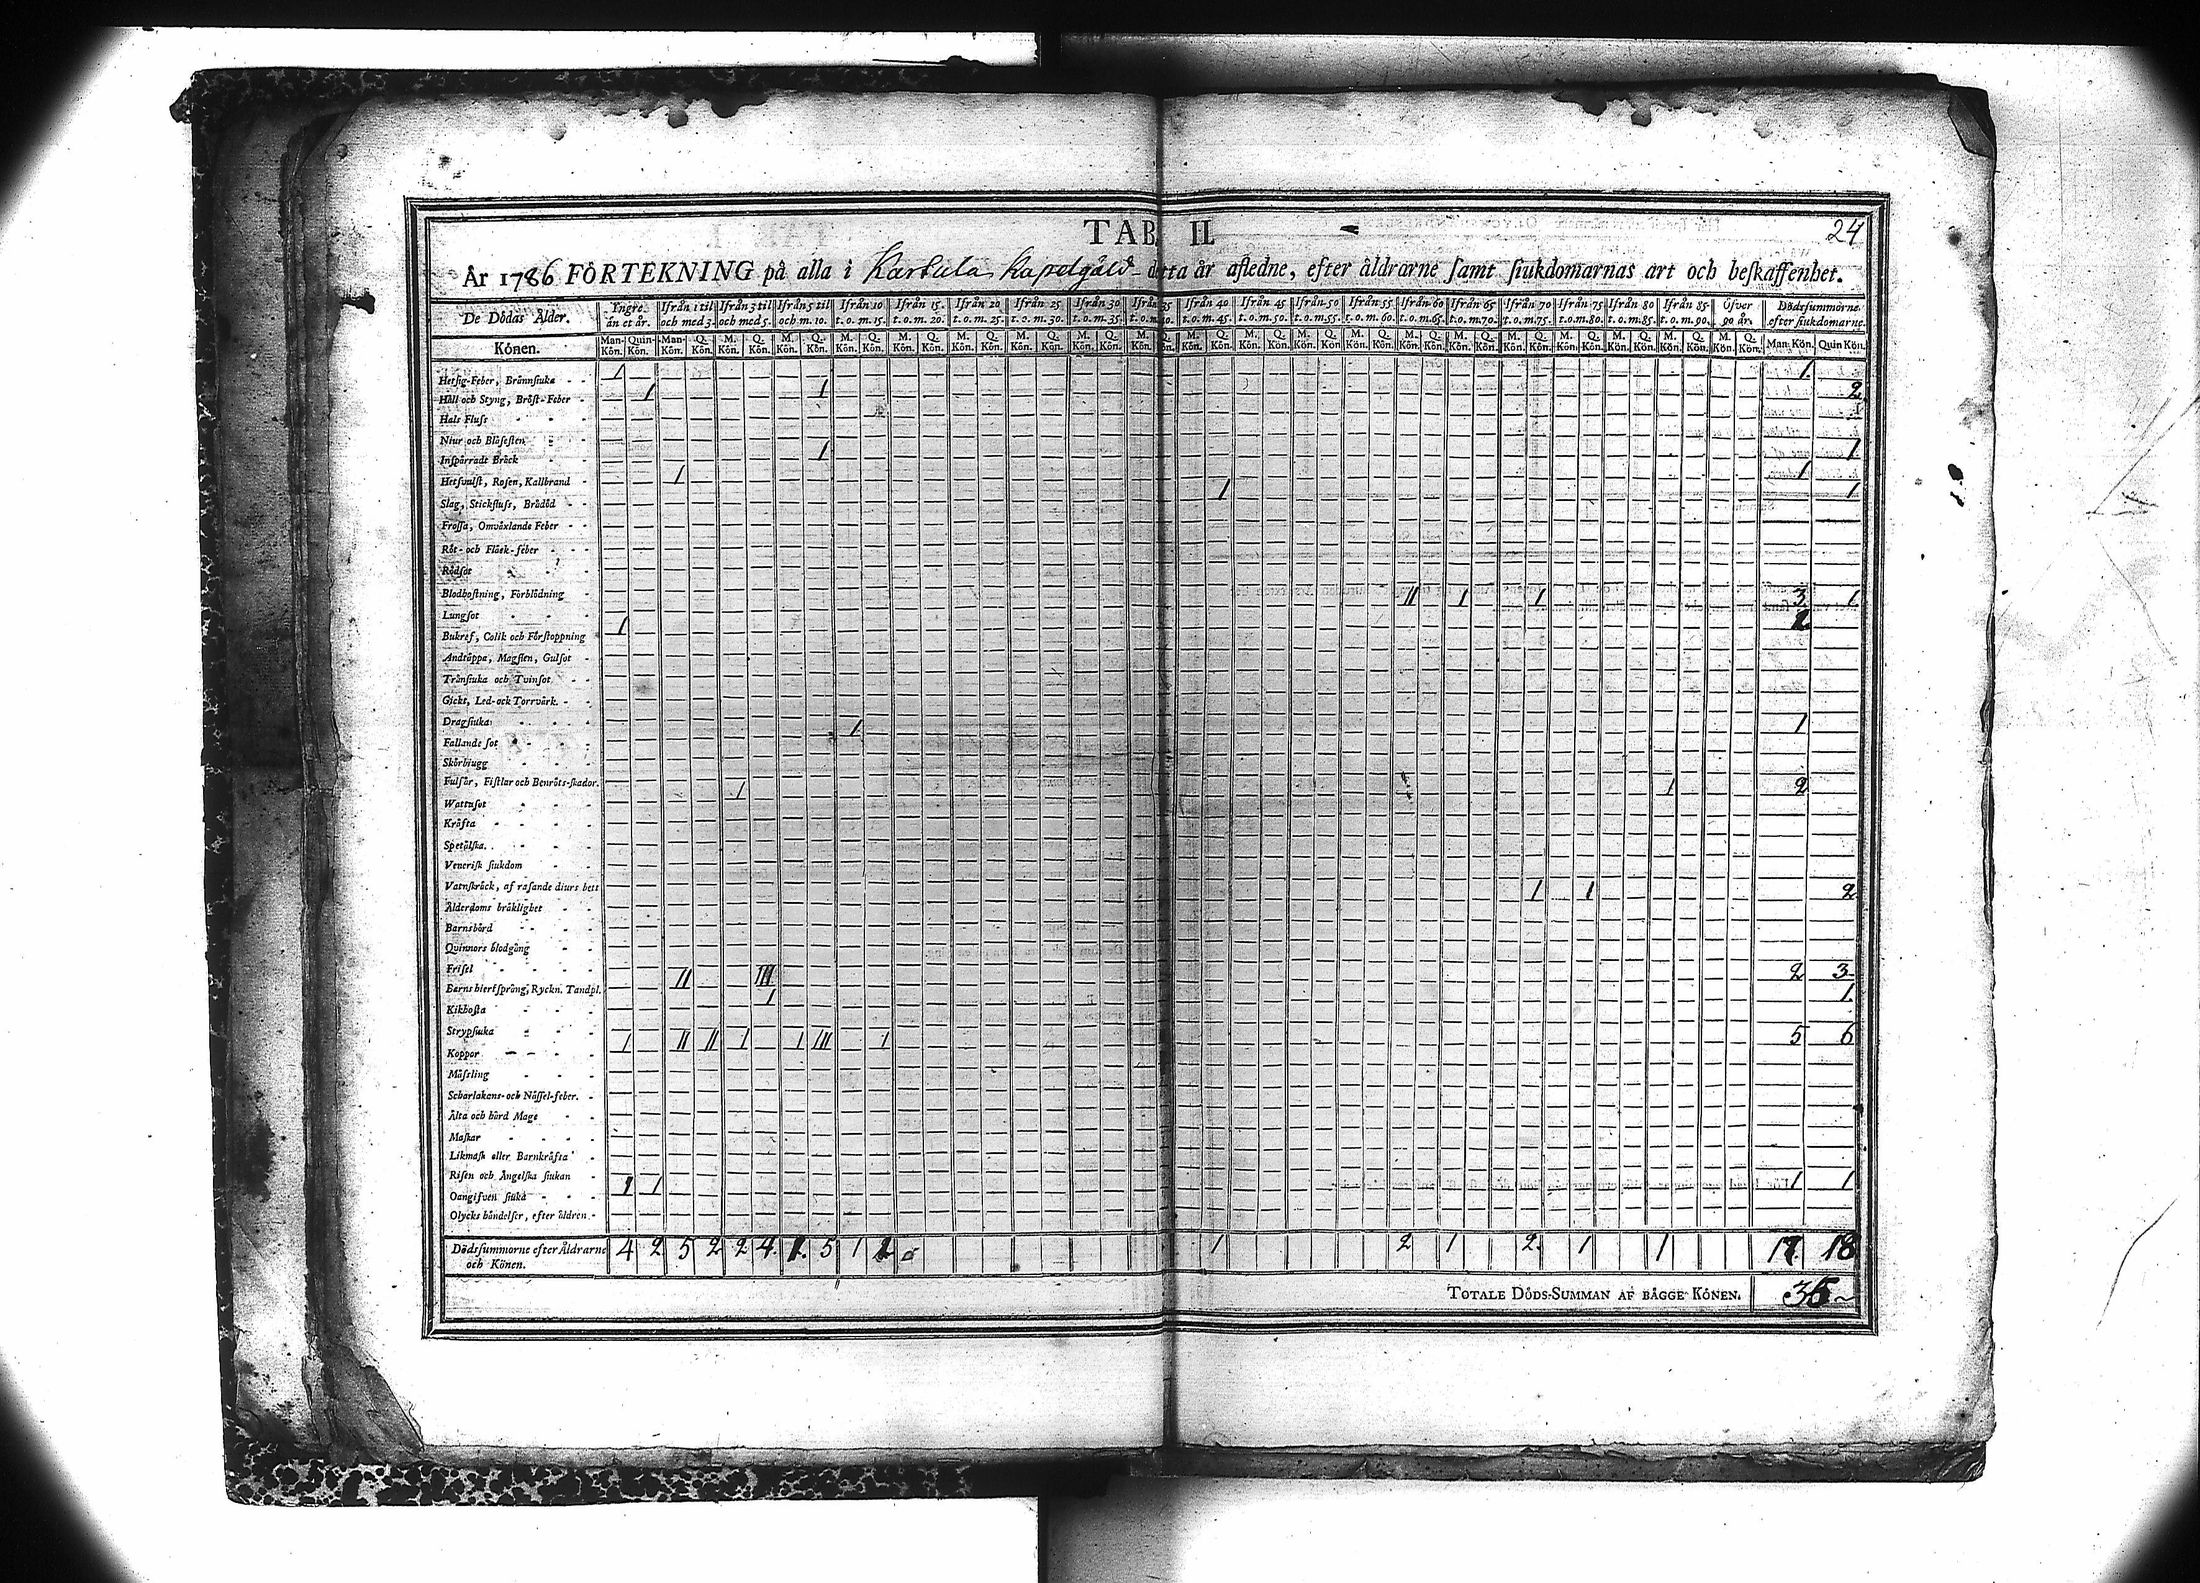 TAB II.
24
År 1786 FÖRTEKNING på alla i Karstula Kapelgäld detta år afledne, efter åldrarne samt siukdomarnas art och beskaffenhet.
De Dödas Ålder. Yngre än et år. Ifrån 1 til och med 3. Ifrån 3 til och med 5. Ifrån 5 til och m. 10. Ifrån 10 t. o. m. 15. Ifrån 15 t. o. m. 20. Ifrån 20 t. o. m. 25. Ifrån 25 t. o. m. 30. Ifrån 30 t. o. m. 35. Ifrån 35 t. o. m. 40. Ifrån 40 t. o. m. 45. Ifrån 45 t. o. m. 50. Ifrån 50 t. o. m. 55. Ifrån 55 t. o. m. 60. Ifrån 60 t. o. m. 65. Ifrån 65 t. o. m. 70. Ifrån 70 t. o. m. 75. Ifrån 75 t. o. m. 80. Ifrån 80 t. o. m. 85. Ifrån 85 t. o. m. 90. Öfver 90 år. Dödssummorne efter siukdomarne.
Könen. Man-Kön. Quin-Kön. Man-Kön. Q. Kön. M. Kön. Q. Kön. M. Kön. Q. Kön. M. Kön. Q. Kön. M. Kön. Q. Kön. M. Kön. Q. Kön. M. Kön. Q. Kön. M. Kön. Q. Kön. M. Kön. Q. Kön. M. Kön. Q. Kön. M. Kön. Q. Kön. M. Kön. Q. Kön. M. Kön. Q. Kön. M. Kön. Q. Kön. M. Kön. Q. Kön. M. Kön. Q. Kön. M. Kön. Q. Kön. M. Kön. Q. Kön. M. Kön. Q. Kön. M. Kön. Q. Kön. Man-Kön. Quin Kön.
Hetsig-Feber, Brännsiuka - - 1 1
Håll och Styng, Bröst-Feber - 1 1 2
Hals Fluss - - -
Niur och Blåsesten - -
Inspärradt Bråck - - 1 1
Hetsvulst, Rosen, Kallbrand - 1 1
Slag, Stickfluss, Brådöd - - 1 1
Frossa, Omväxlande Feber - -
Röt- och Fläck-feber - - -
Rödsot - -
Blodhostning, Förblödning -
Lungsot - - - II 1 1 3 1
Bukref, Colik och Förstoppning 1
Andtäppa, Magsten, Gulsot -
Trånsiuka och Tvinsot - -
Gickt, Led- ock Torrvärk. - -
Dragsiuka - - - -
Fallande sot - - - 1 1
Skörbiugg - - - -
Fulsår, Fistlar och Benröts-skador.
Wattusot - - - 1 1 2
Kräfta - - - -
Spetälska. - - -
Venerisk siukdom - -
Vatnskräck, af rasande diurs bett
Ålderdoms bräklighet - - 1 1 2
Barnsbörd - - -
Quinnors blodgång - -
Frisel - - - -
Barns hiertsprång, Ryckn. Tandpl. II III 2 3
Kikhosta - - - 1 1
Strypsiuka - - -
Koppor - - - - 1 II II 1 1 III 1 5 6
Mässling - - -
Scharlakans- och Nässel-feber. -
Älta och hård Mage - -
Maskar - - - -
Likmask eller Barnkräfta -
Risen och Ängelska siukan -
Oangifven siuka - - - 1 1 1 1
Olycks händelser, efter åldren. -
Dödssummorne efter Åldrarne och Könen. 4 2 5 2 2 4 1 5 1 1 1 2 1 2 1 1 17 18
TOTALE DÖDS-SUMMAN AF BÅGGE KÖNEN. 35